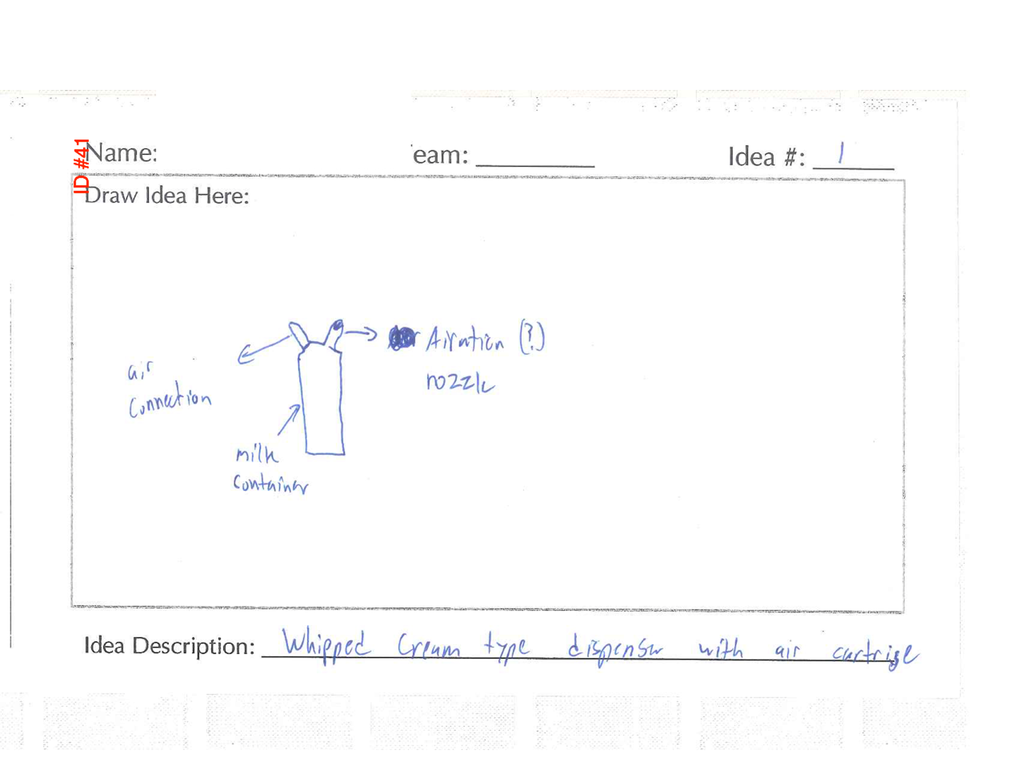 ID #41
Name: eam: Idea #: 1
Draw Idea Here:
Airation (?)
nozzle
air
connection
milk
container
Idea Description: Whipped Cream type dispenser with air cartrige